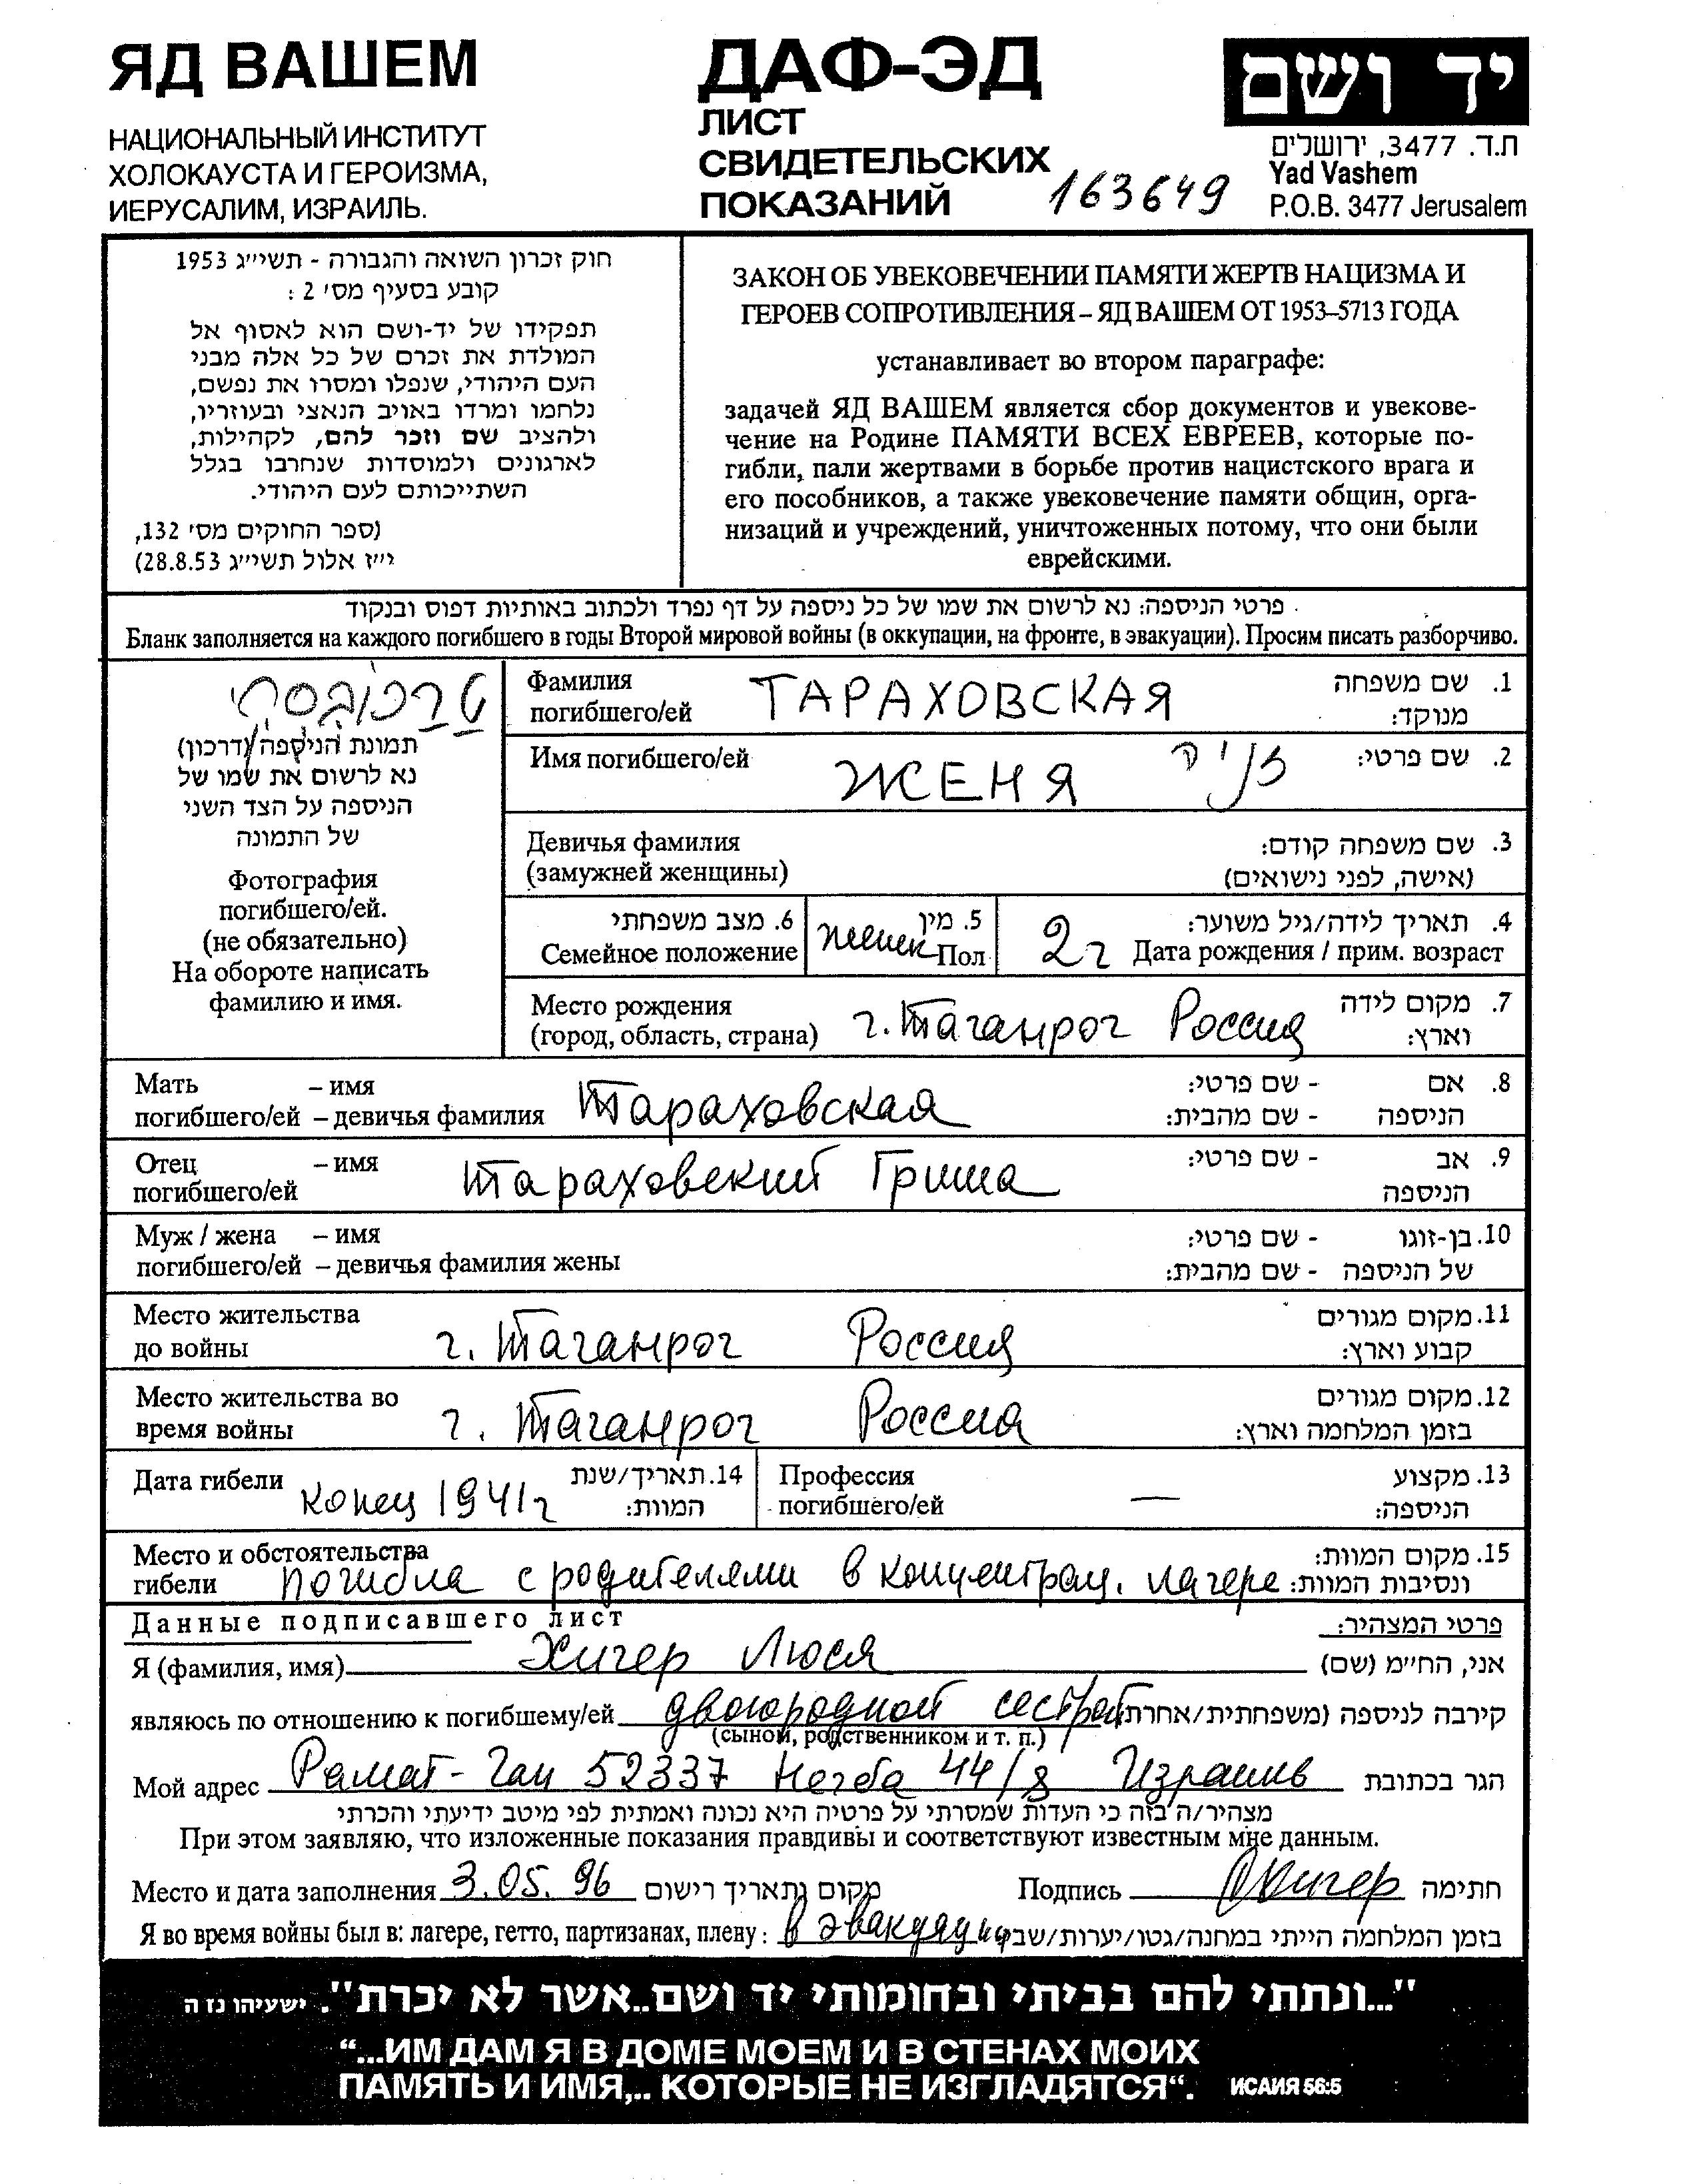 ЯД ВАШЕМ
НАЦИОНАЛЬНЫЙ ИНСТИТУТ
ХОЛОКАУСТА И ГЕРОИЗМА,
ИЕРУСАЛИМ, ИЗРАИЛЬ.
ДАФ-ЭД
ЛИСТ
СВИДЕТЕЛЬСКИХ
ПОКАЗАНИЙ 163649
יד ושם
ת.ד. 3477, ירושלים
Yad Vashem
P.O.B. 3477 Jerusalem
חוק זכרון השואה והגבורה - תשי״ג 1953
קובע בסעיף מס׳ 2 :
תפקידו של יד-ושם הוא לאסוף אל
המולדת את זכרם של כל אלה מבני
העם היהודי, שנפלו ומסרו את נפשם,
נלחמו ומרדו באויב הנאצי ובעוזריו,
ולהציב שם וזכר להם, לקהילות,
לארגונים ולמוסדות שנחרבו בגלל
השתייכותם לעם היהודי.
(ספר החוקים מס׳ 132,
י״ז אלול תשי״ג 28.8.53)
ЗАКОН ОБ УВЕКОВЕЧЕНИИ ПАМЯТИ ЖЕРТВ НАЦИЗМА И
ГЕРОЕВ СОПРОТИВЛЕНИЯ – ЯД ВАШЕМ ОТ 1953–5713 ГОДА
устанавливает во втором параграфе:
задачей ЯД ВАШЕМ является сбор документов и увекове-
чение на Родине ПАМЯТИ ВСЕХ ЕВРЕЕВ, которые по-
гибли, пали жертвами в борьбе против нацистского врага и
его пособников, а также увековечение памяти общин, орга-
низаций и учреждений, уничтоженных потому, что они были
еврейскими.
פרטי הניספה: נא לרשום את שמו של כל ניספה על דף נפרד ולכתוב באותיות דפוס ובנקוד
Бланк заполняется на каждого погибшего в годы Второй мировой войны (в оккупации, на фронте, в эвакуации). Просим писать разборчиво.
טרכובסקי
תמונת הניספה (דרכון)
נא לרשום את שמו של
הניספה על הצד השני
של התמונה
Фотография
погибшего/ей.
(не обязательно)
На обороте написать
фамилию и имя.
Фамилия ТАРАХОВСКАЯ 1. שם משפחה
погибшего/ей מנוקד:
Имя погибшего/ей ЖЕНЯ 2. שם פרטי:
Девичья фамилия 3. שם משפחה קודם:
(замужней женщины) (אישה, לפני נישואים)
6. מצב משפחתי 5. מין 4. תאריך לידה/גיל משוער:
Семейное положение женск Пол 2 г Дата рождения / прим. возраст
Место рождения 7. מקום לידה
(город, область, страна) г. Таганрог Россия וארץ:
Мать – имя 8. אם - שם פרטי:
погибшего/ей – девичья фамилия Тараховская הניספה - שם מהבית:
Отец – имя 9. אב - שם פרטי:
погибшего/ей Тараховский Гриша הניספה
Муж / жена – имя 10. בן-זוגו - שם פרטי:
погибшего/ей – девичья фамилия жены של הניספה - שם מהבית:
Место жительства 11. מקום מגורים
до войны г. Таганрог Россия קבוע וארץ:
Место жительства во 12. מקום מגורים
время войны г. Таганрог Россия בזמן המלחמה וארץ:
Дата гибели конец 1941г 14. תאריך/שנת המוות:
Профессия 13. מקצוע
погибшего/ей — הניספה:
Место и обстоятельства 15. מקום המוות:
гибели погибла с родителями в концентрац. лагере ונסיבות המוות:
Данные подписавшего лист פרטי המצהיר:
Я (фамилия, имя) Хигер Люся אני, הח״מ (שם)
являюсь по отношению к погибшему/ей двоюродной сестрой קירבה לניספה (משפחתית/אחרת)
(сыном, родственником и т. п.)
Мой адрес Рамат-Ган 52337 Негба 44/8 Израиль הגר בכתובת
מצהיר/ה בזה כי העדות שמסרתי על פרטיה היא נכונה ואמתית לפי מיטב ידיעתי והכרתי
При этом заявляю, что изложенные показания правдивы и соответствуют известным мне данным.
Место и дата заполнения 3.05.96 מקום ותאריך רישום Подпись Хигер חתימה
Я во время войны был в: лагере, гетто, партизанах, плену: в эвакуации בזמן המלחמה הייתי במחנה/גטו/יערות/שבי
"...ונתתי להם בביתי ובחומותי יד ושם..אשר לא יכרת". ישעיהו נז ה
“...ИМ ДАМ Я В ДОМЕ МОЕМ И В СТЕНАХ МОИХ
ПАМЯТЬ И ИМЯ,.. КОТОРЫЕ НЕ ИЗГЛАДЯТСЯ“. ИСАИЯ 56:5